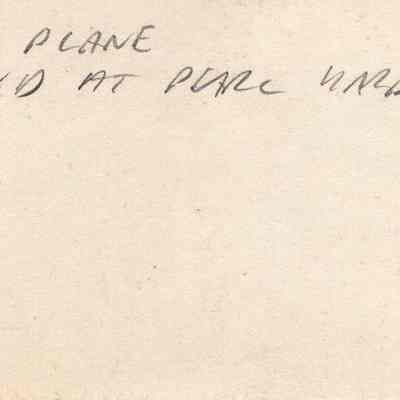 PLANE
D AT PEARL HARB